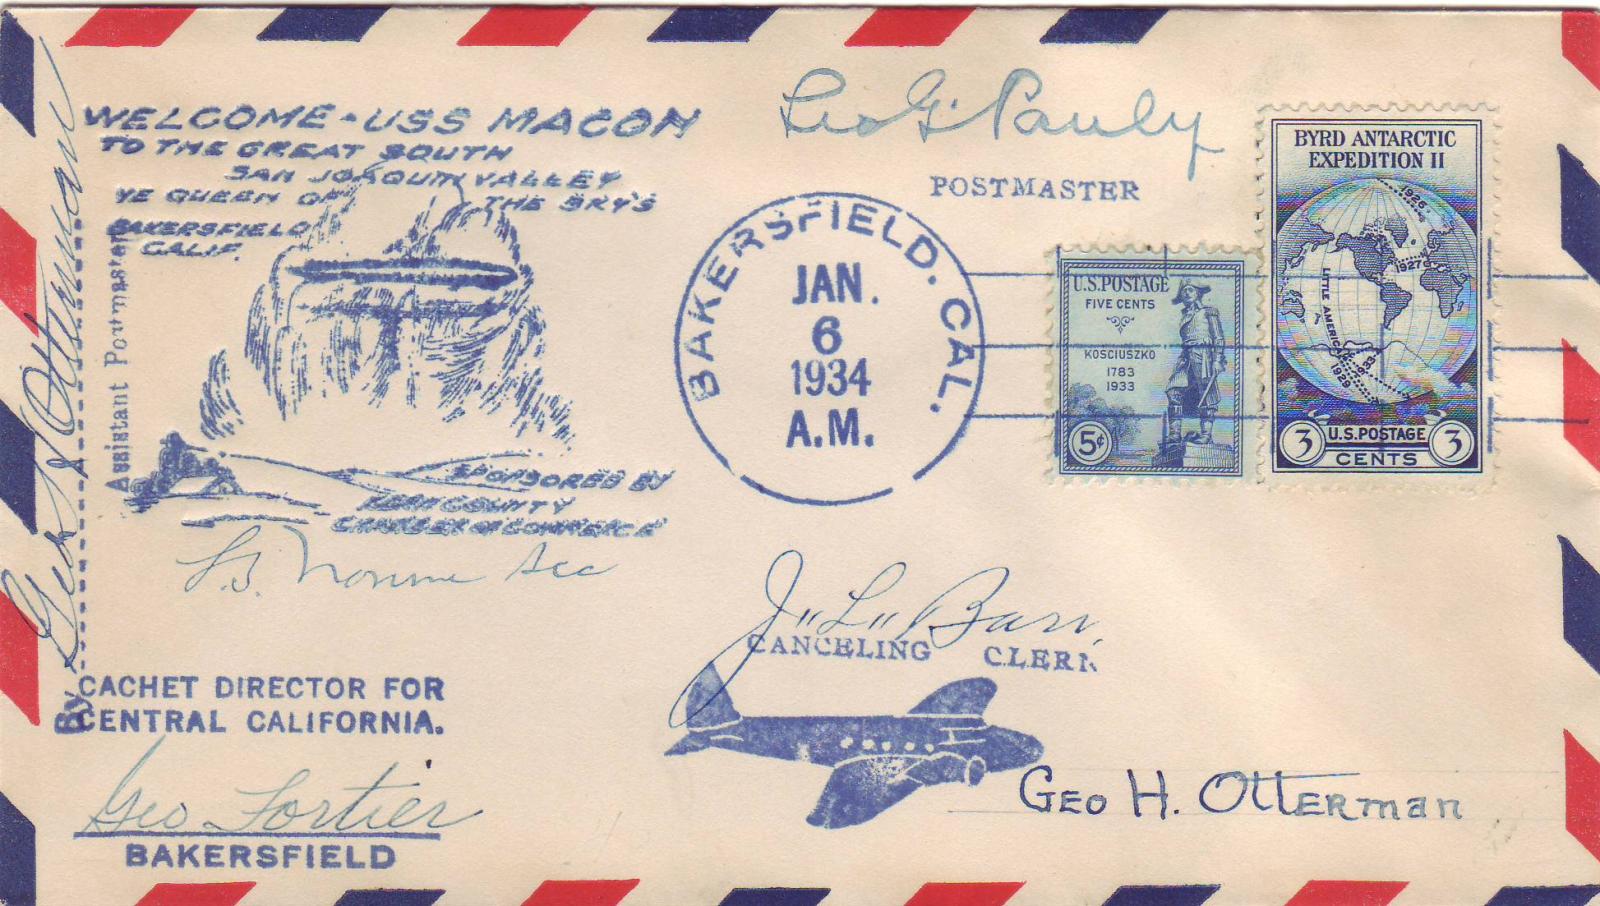 WELCOME - USS MACON
TO THE GREAT SOUTH
SAN JOAQUIN VALLEY
YE QUEEN OF THE SKY'S
BAKERSFIELD
CALIF.
SPONSORED BY
KERN COUNTY
CHAMBER OF COMMERCE
Sec
By Geo H Otterman
Assistant Postmaster
CACHET DIRECTOR FOR
CENTRAL CALIFORNIA.
Geo Fortier
BAKERSFIELD
Leo G. Pauly
POSTMASTER
BAKERSFIELD. CAL.
JAN.
6
1934
A.M.
U.S. POSTAGE
FIVE CENTS
KOSCIUSZKO
1783
1933
5¢
BYRD ANTARCTIC
EXPEDITION II
1926
1927
LITTLE AMERICA
1929
1933
3 U.S. POSTAGE 3
CENTS
J "L" Barr.
CANCELING CLERK
GEO H. OTTERman